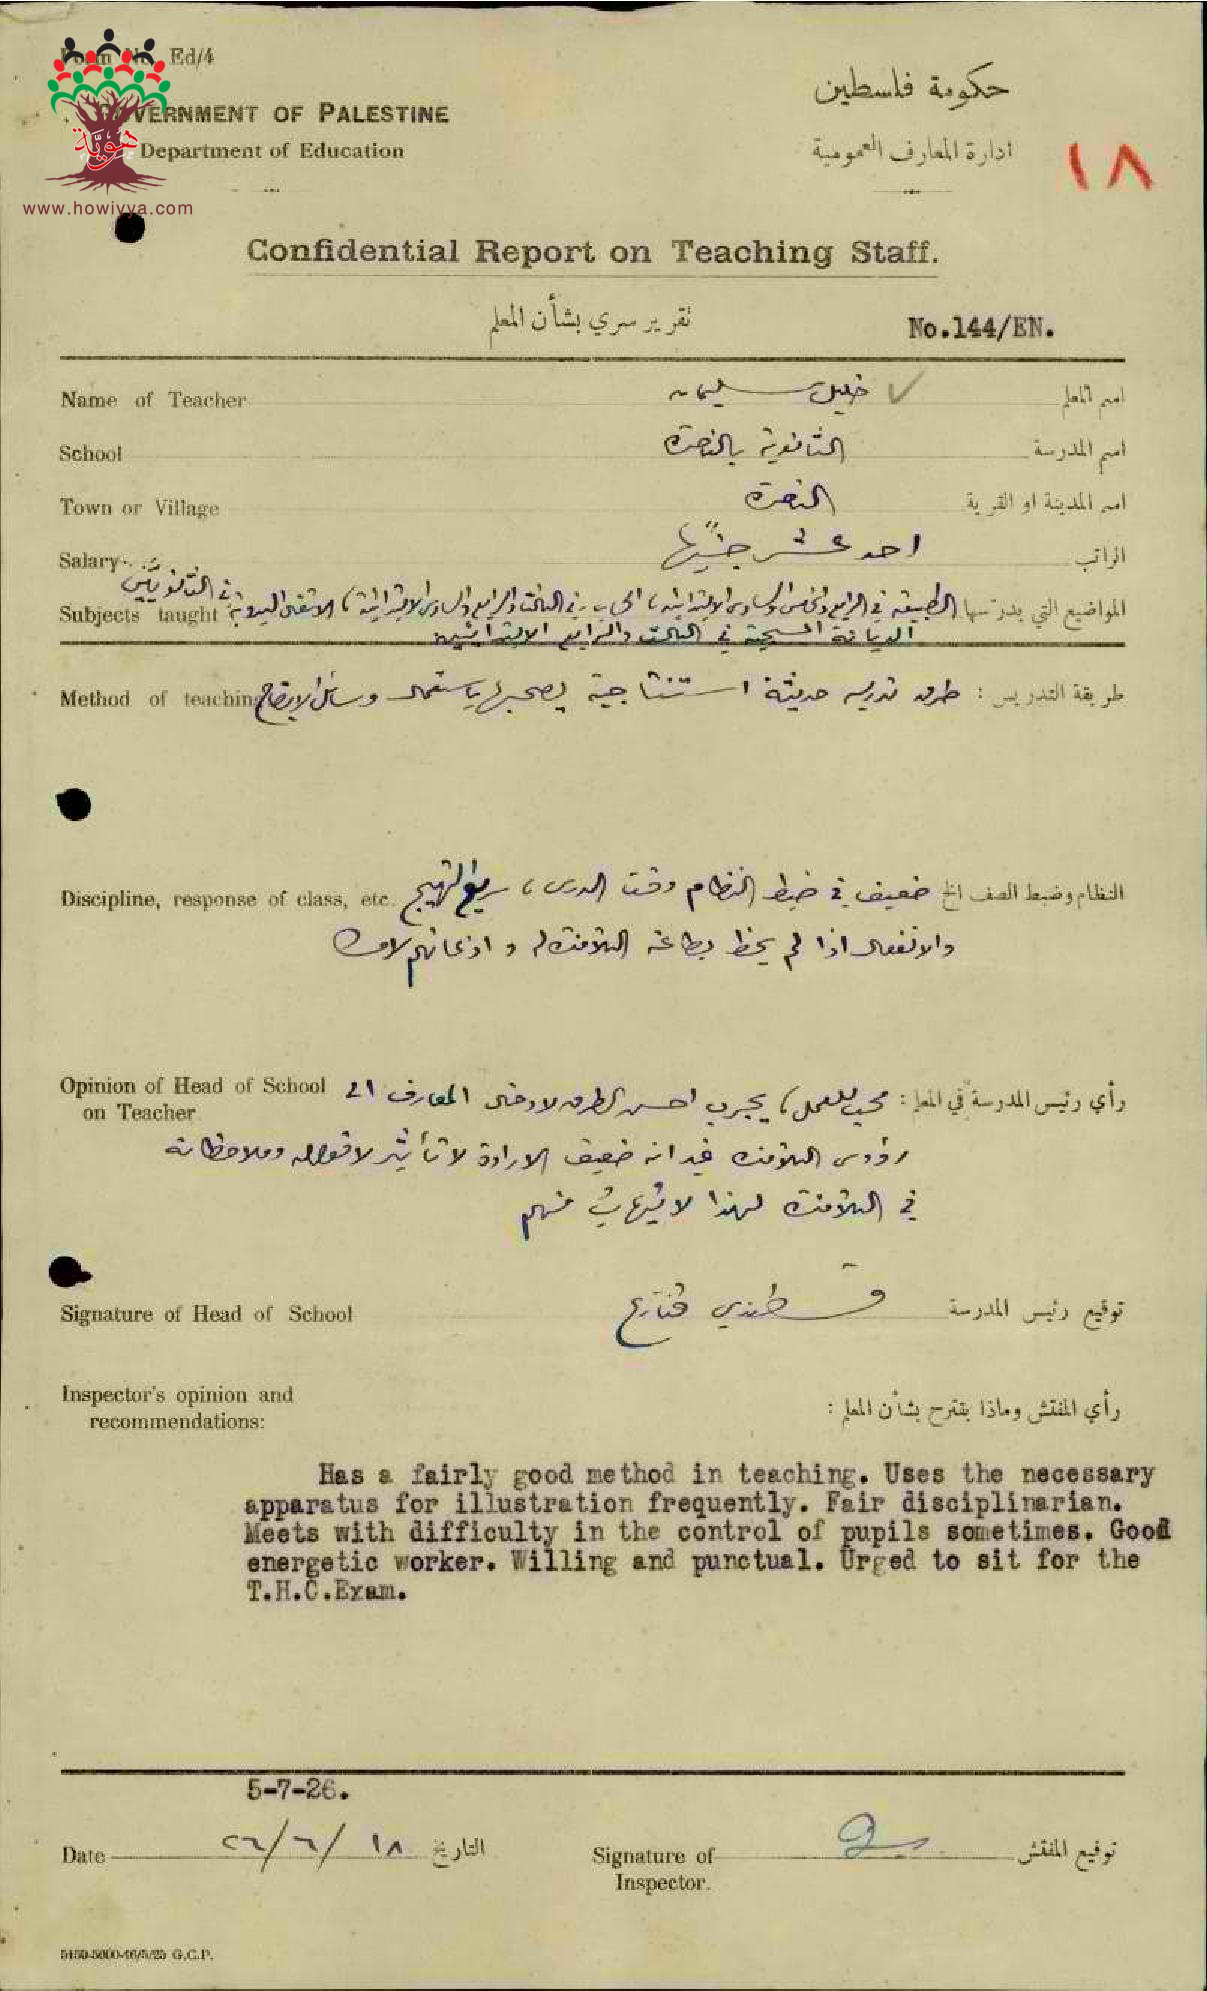 Form No. Ed/4
GOVERNMENT OF PALESTINE
Department of Education
حكومة فلسطين
ادارة المعارف العمومية
١٨
هوية
www.howiyya.com
Confidential Report on Teaching Staff.
تقرير سري بشأن المعلم
No.144/EN.
Name of Teacher خليل سليمان اسم المعلم
School الثانوية بالناصرة اسم المدرسة
Town or Village الناصرة اسم المدينة او القرية
Salary احد عشر جنيها الراتب
Subjects taught المواضيع التي يدرسها الطبيعة في الرابع والخامس والسادس الابتدائية، الحساب في الثالث والرابع والسادس الابتدائية، الاشغال اليدوية في الثانويين
الديانة المسيحية في الثالث والرابع الابتدائيين
Method of teaching طريقة التدريس : طرق تدريسه حديثة استنتاجية يصحبها باستعمال وسائل الايضاح
Discipline, response of class, etc. النظام وضبط الصف الخ ضعيف في ضبط النظام وقت الدرس، سريع التهيج
والانفعال اذا لم يحظ بطاعة التلامذة له و اذعانهم لامره
Opinion of Head of School on Teacher رأي رئيس المدرسة في المعلم : محب للعمل، يجرب احسن الطرق لادخال المعارف الى
رؤوس التلامذة غير انه ضعيف الارادة لا تأثير لاقواله وملاحظاته
في التلامذة لهذا لا يتهيب منهم
Signature of Head of School قسطندي قنازع توقيع رئيس المدرسة
Inspector's opinion and recommendations: رأي المفتش وماذا يقترح بشأن المعلم :
Has a fairly good method in teaching. Uses the necessary
apparatus for illustration frequently. Fair disciplinarian.
Meets with difficulty in the control of pupils sometimes. Good
energetic worker. Willing and punctual. Urged to sit for the
T.H.C.Exam.
5-7-26.
Date ١٨/٦/٢٦ التاريخ
Signature of Inspector. توقيع المفتش
5150-5000-16/5/25 G.C.P.